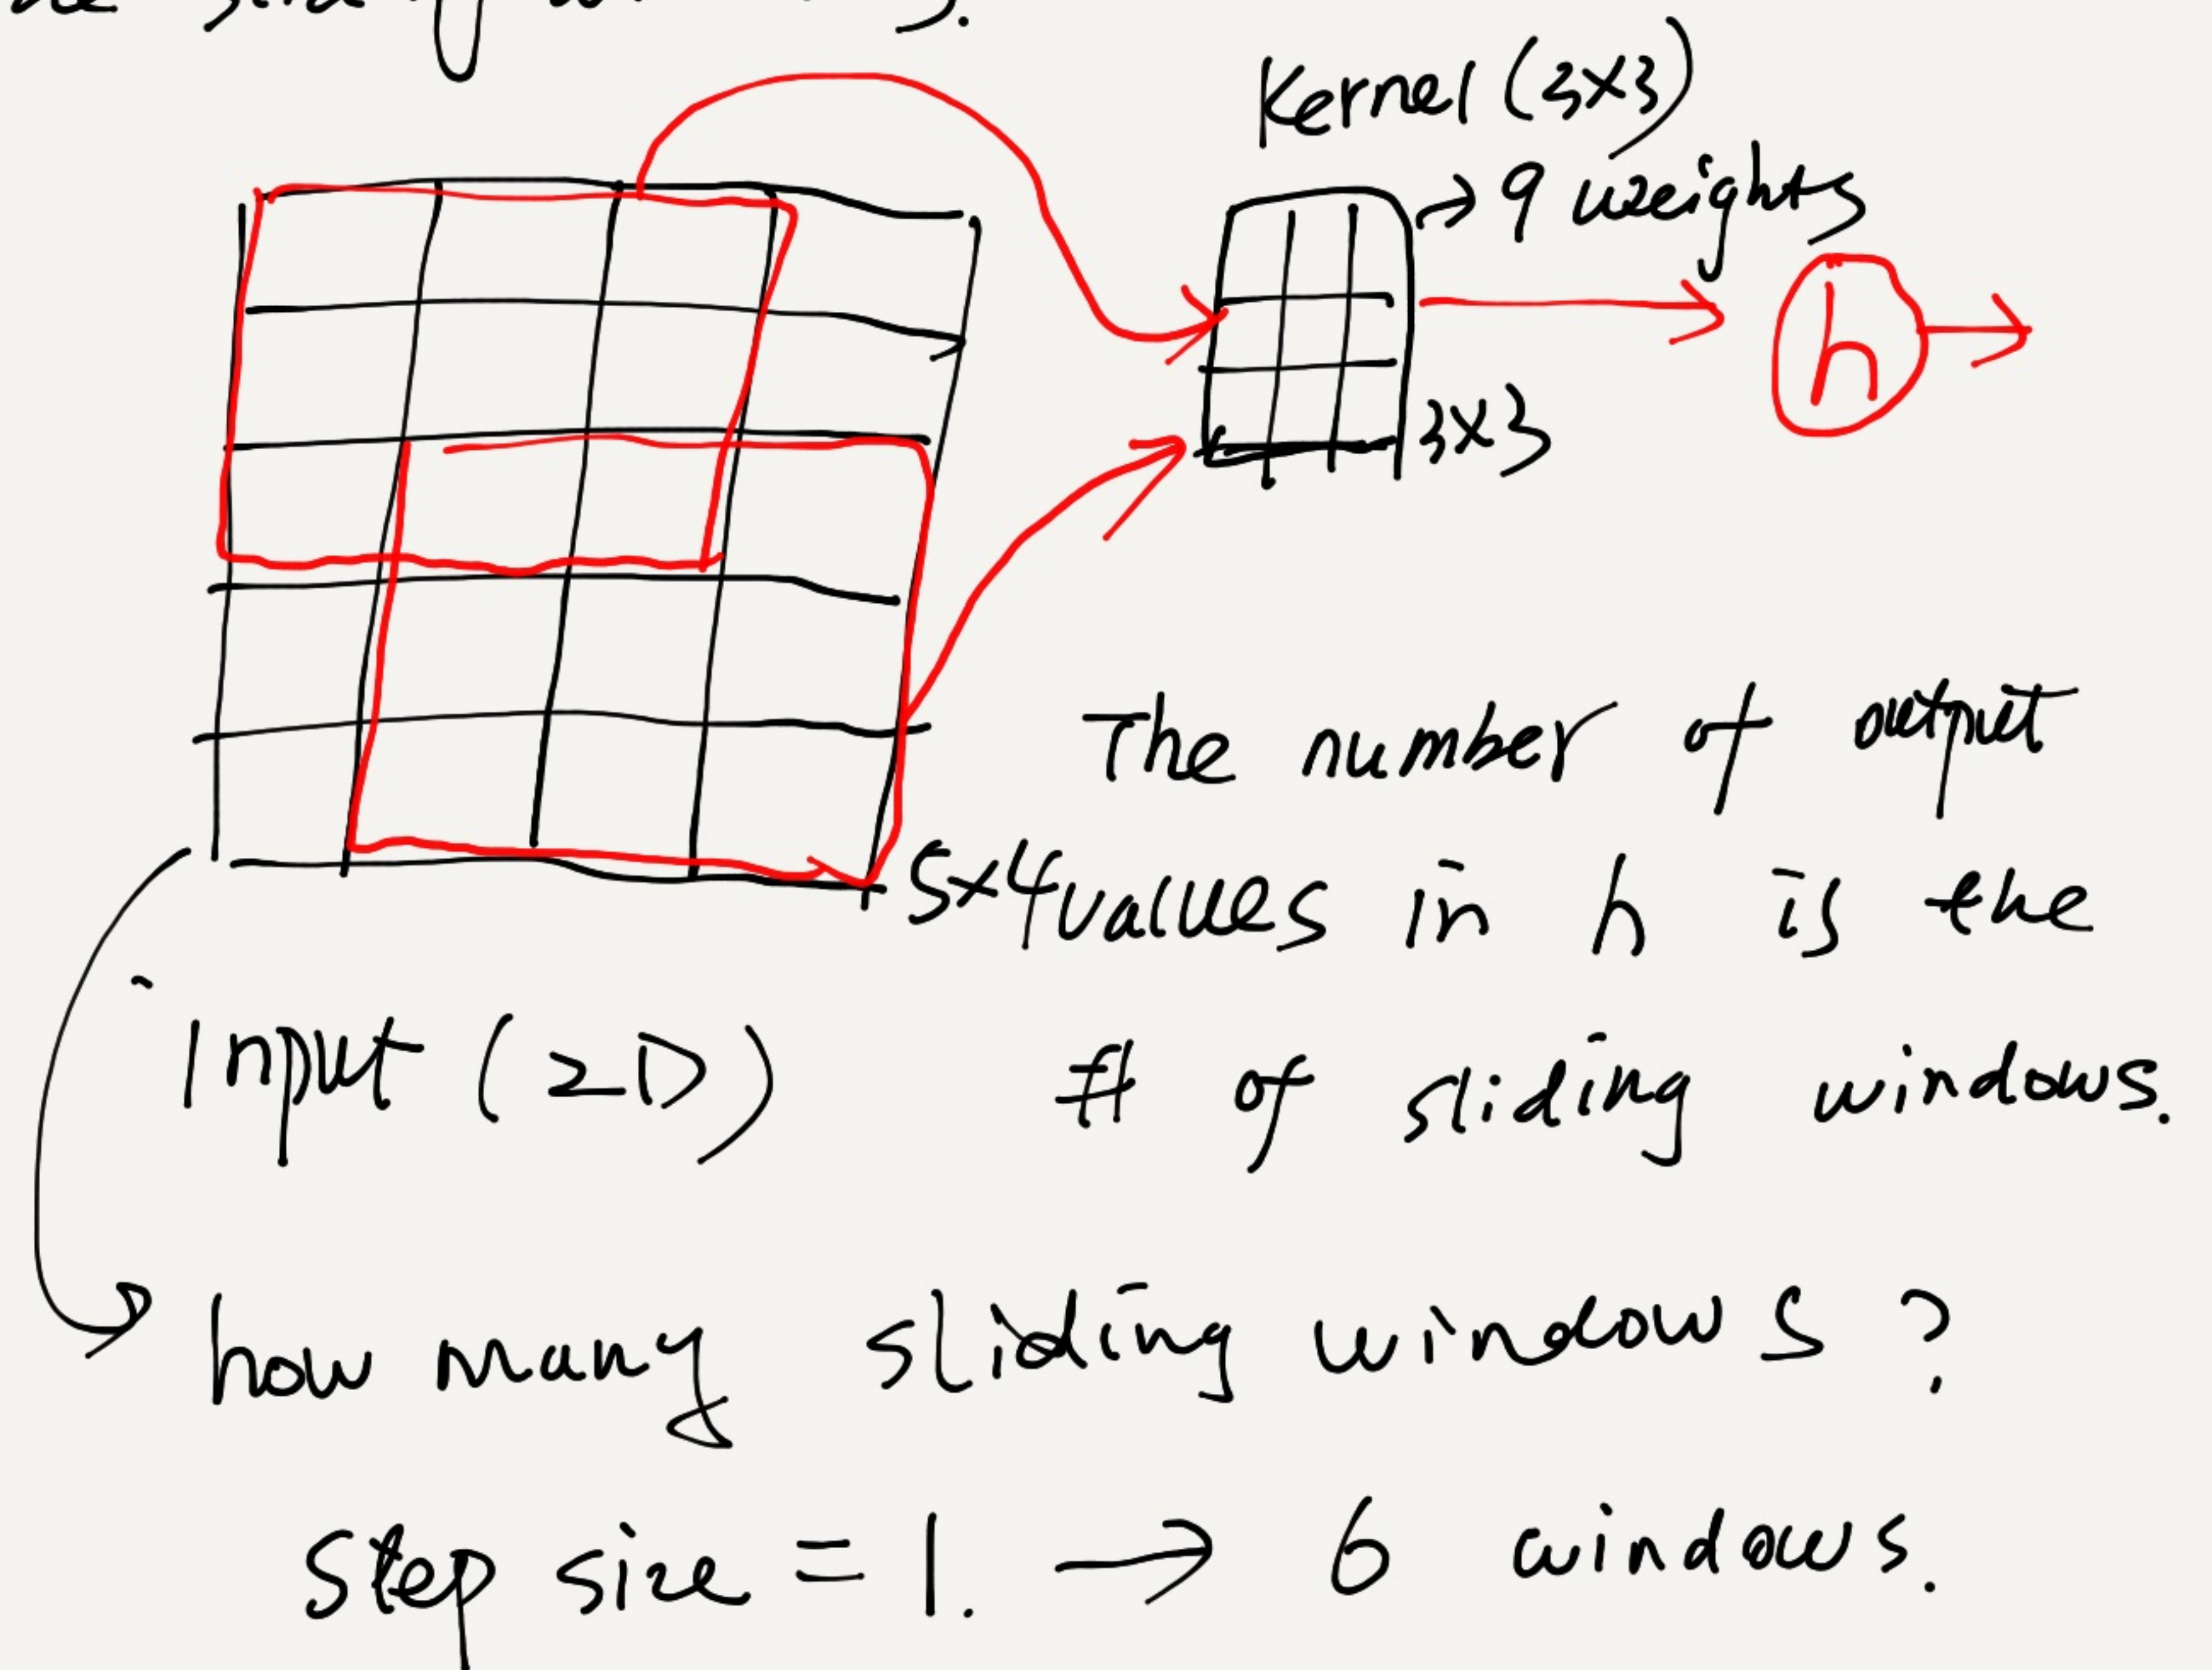 Kernel (3x3)
→ 9 weights
h
3x3
The number of output
5x4
values in h is the
Input (2D)
# of sliding windows.
how many sliding windows?
Step size = 1. → 6 windows.